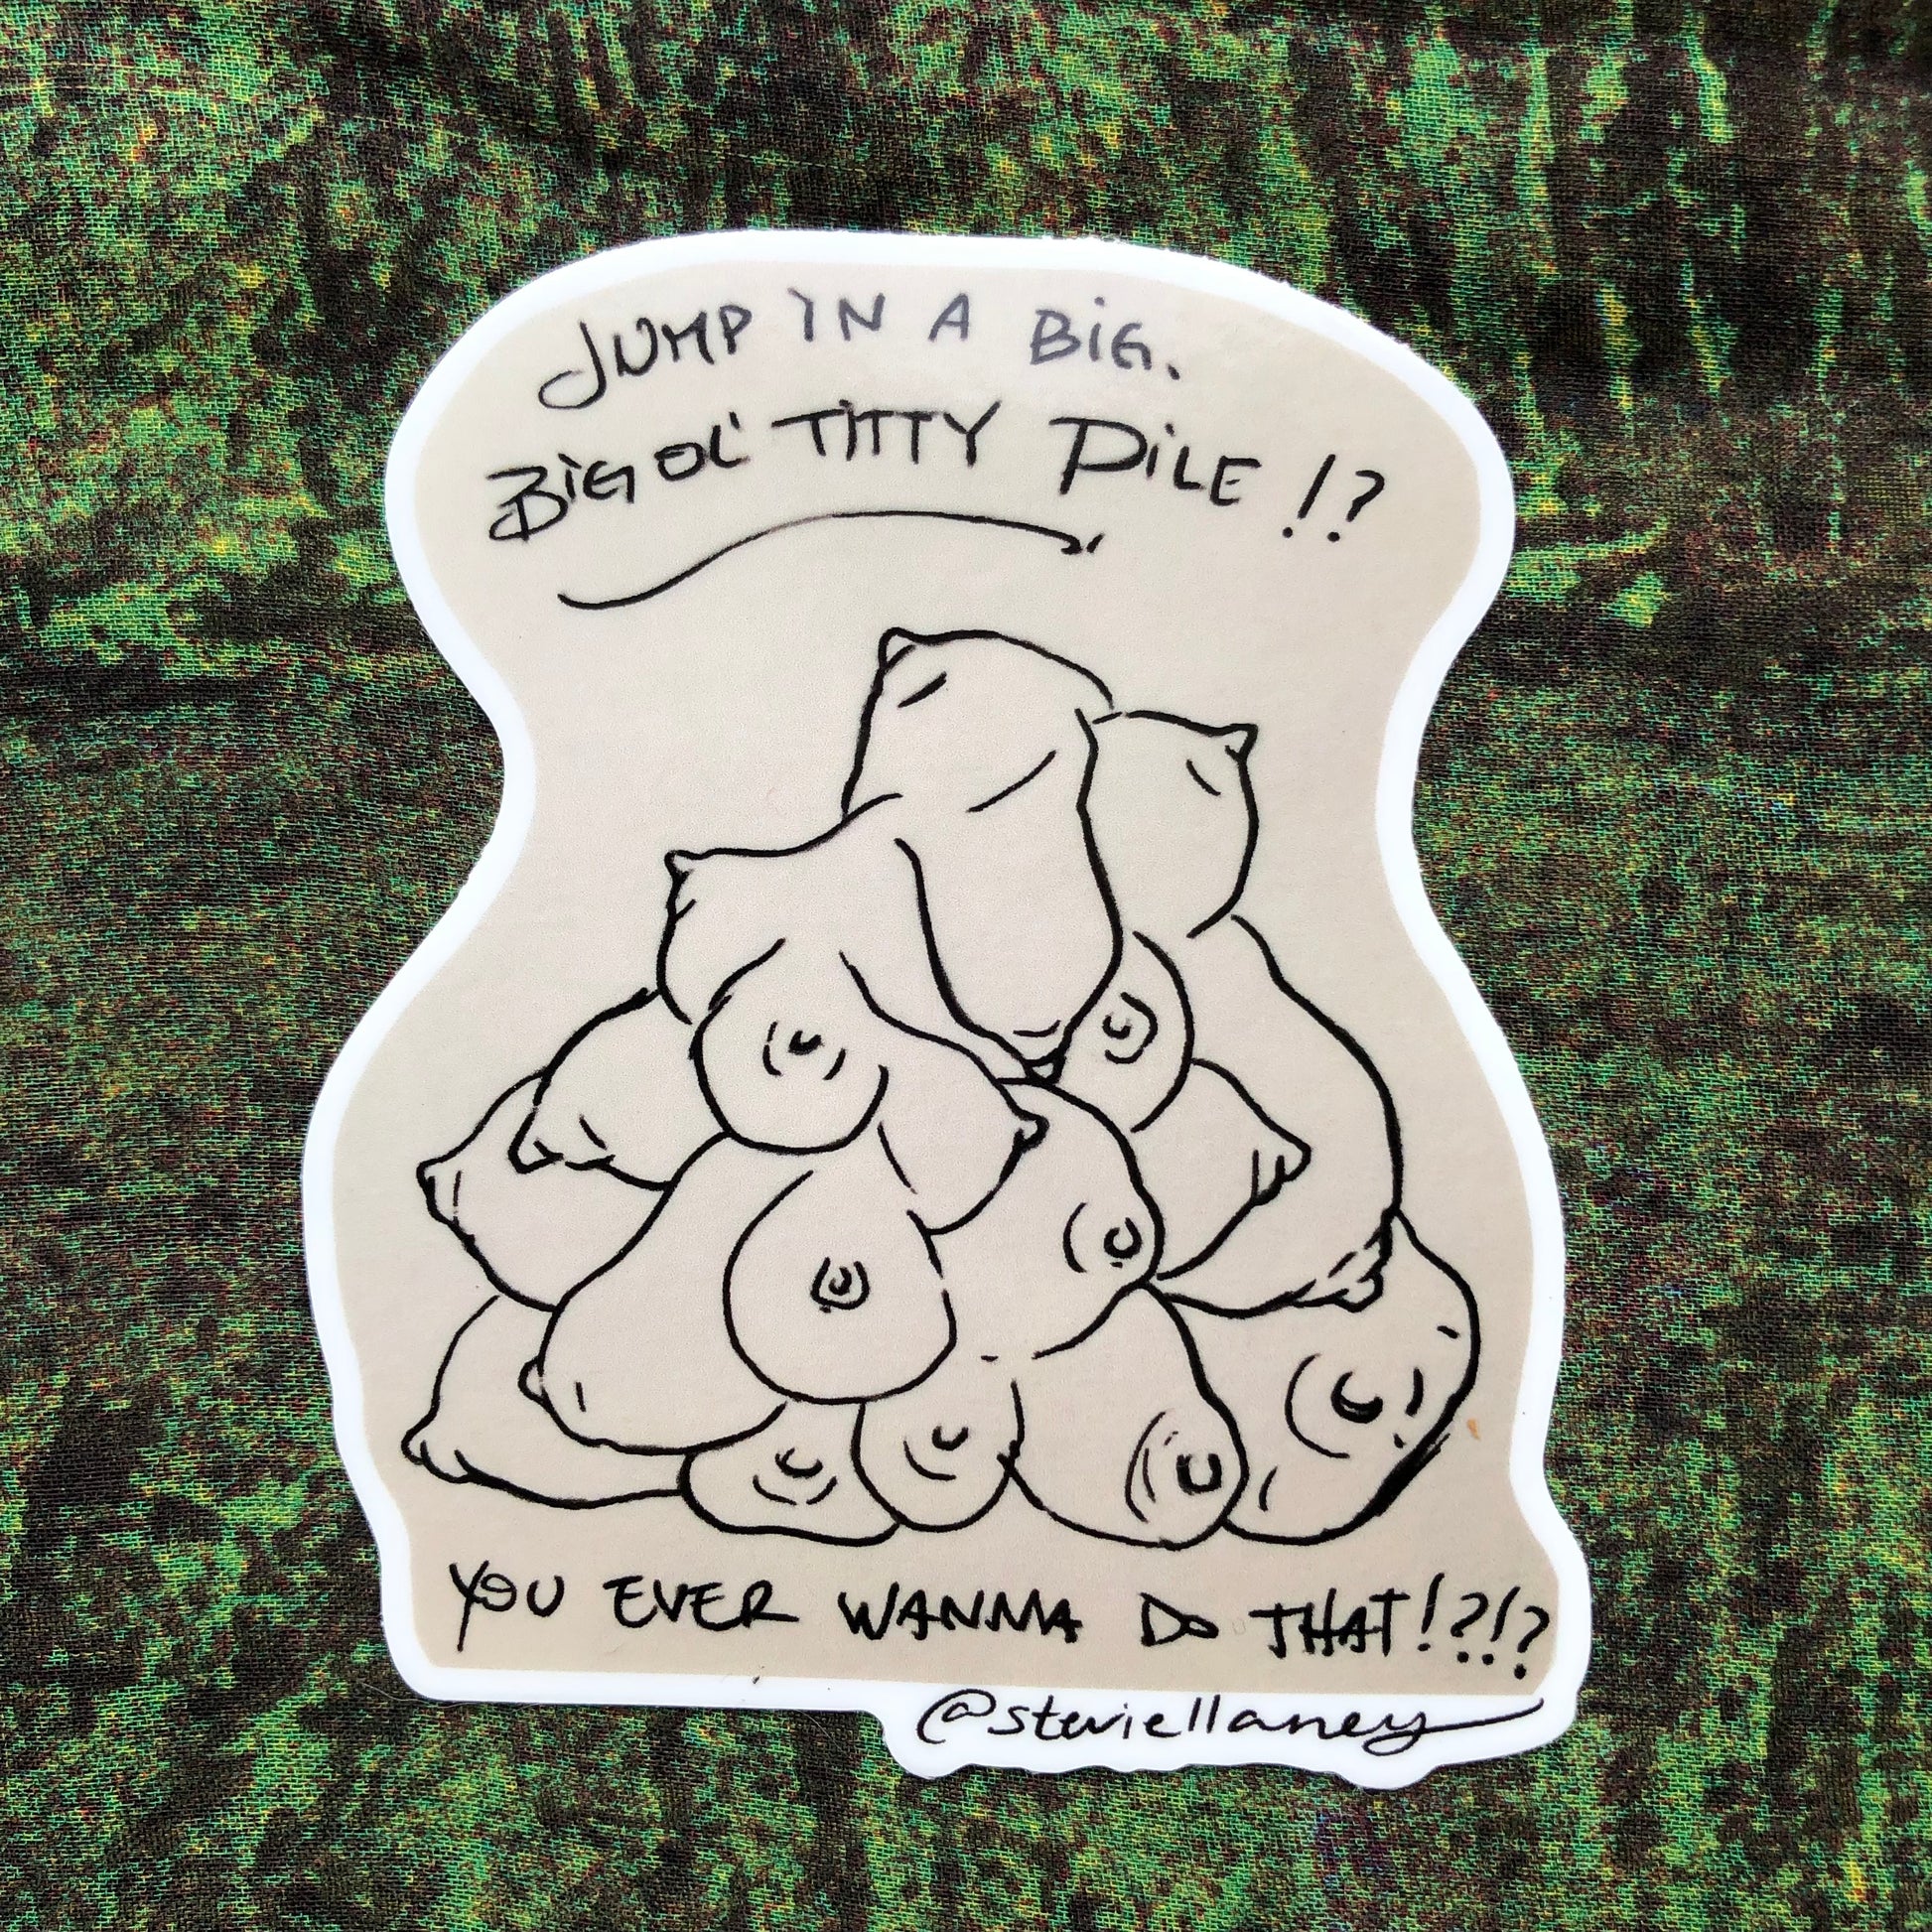 JUMP IN A BIG.
BIG OL' TITTY PILE!?
YOU EVER WANNA DO THAT!?!?
@steviellaney